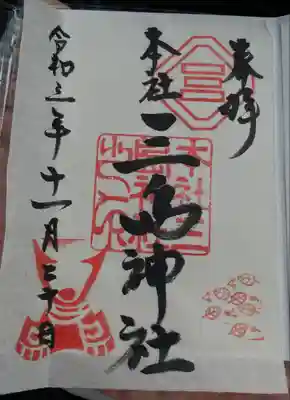 奉拝
本社
三島神社
令和三年十一月三十日